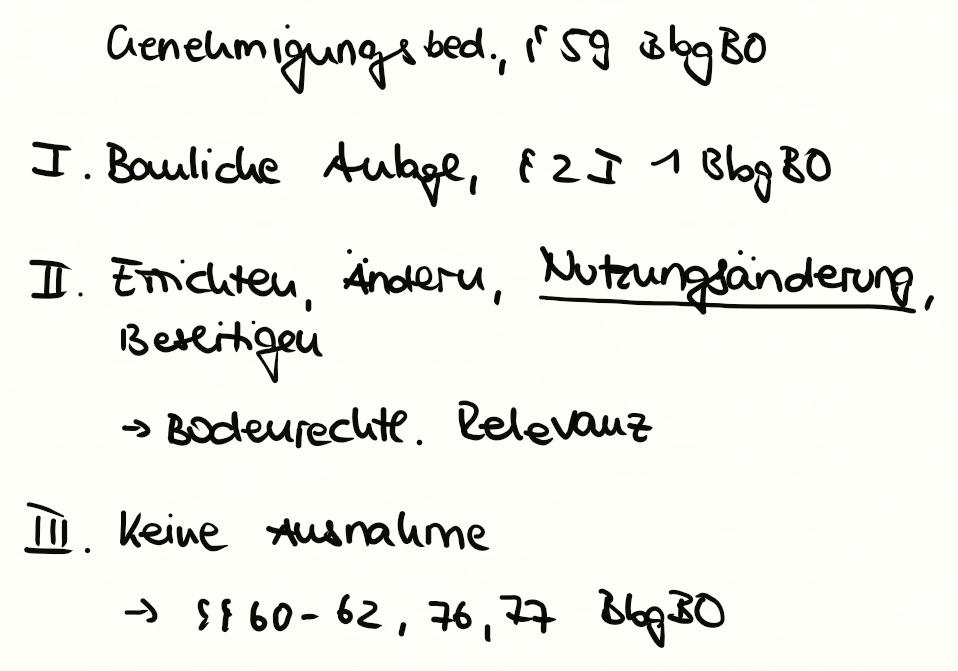 Genehmigungsbed., § 59 BbgBO
I. Bauliche Anlage, § 2 I 1 BbgBO
II. Errichten, Ändern, Nutzungsänderung,
Beseitigen
→ Bodenrechtl. Relevanz
III. Keine Ausnahme
→ §§ 60-62, 76, 77 BbgBO